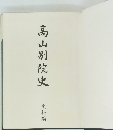 高山別院史